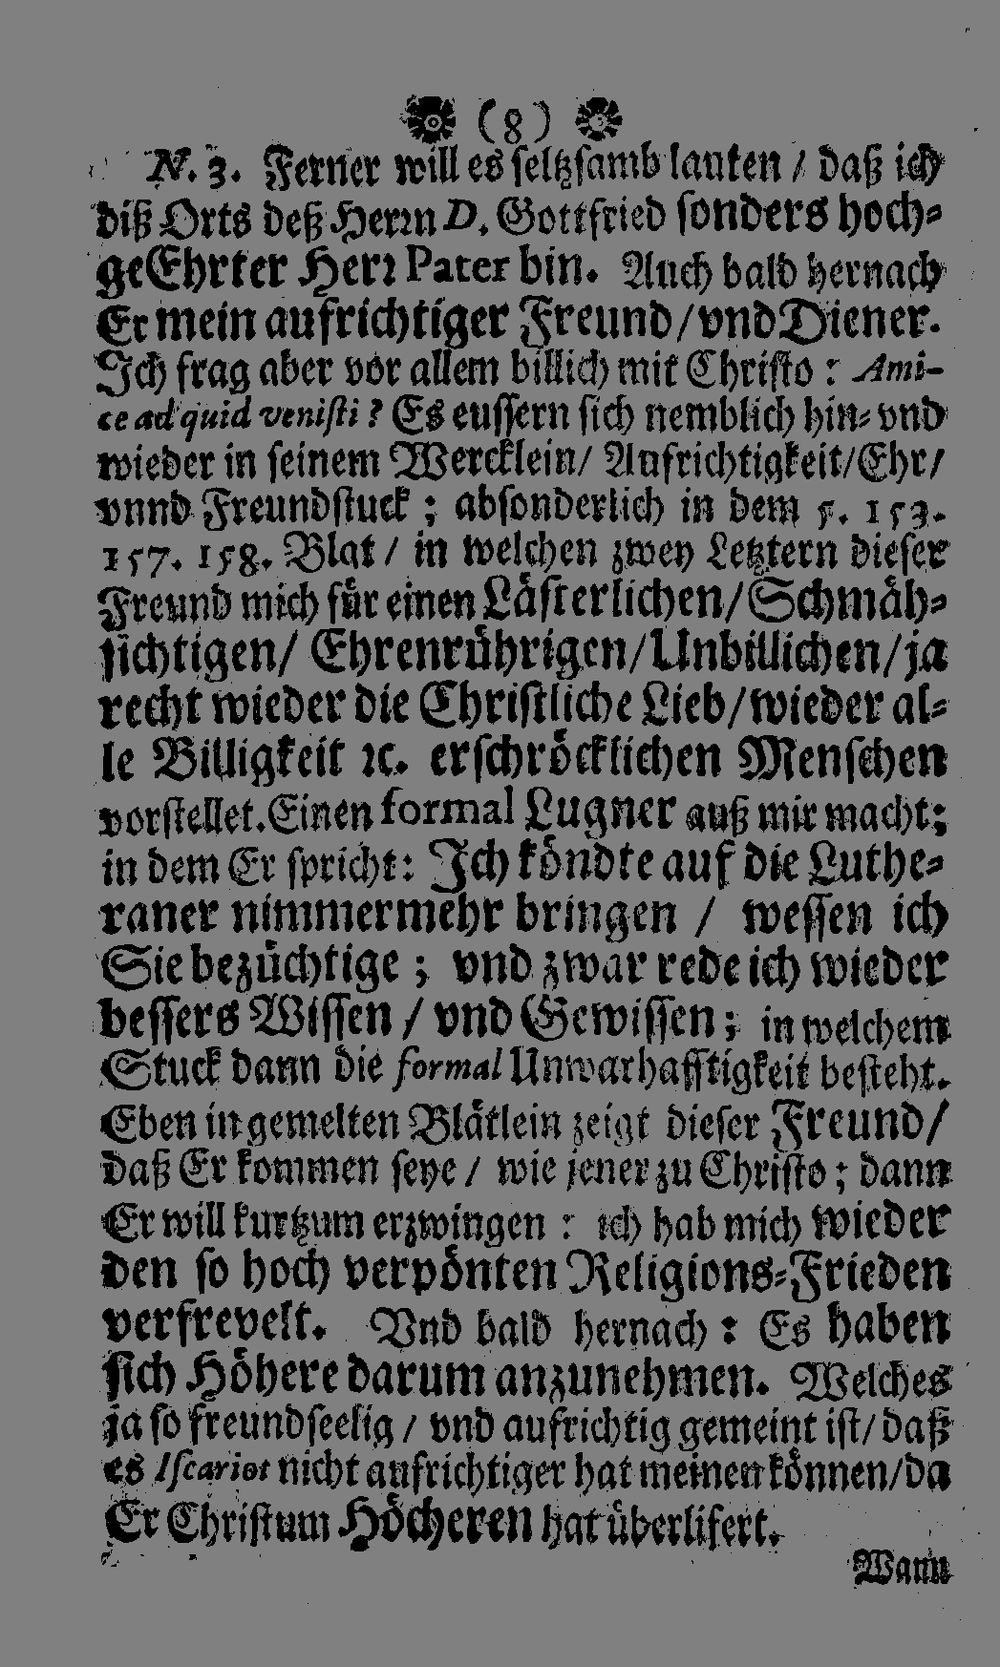 (8)
N. 3. Ferner will es seltzsamb lauten / daß ich
diß Orts deß Herrn D. Gottfried sonders hoch-
geEhrter Herr Pater bin. Auch bald hernach
Er mein aufrichtiger Freund / vnd Diener.
Ich frag aber vor allem billich mit Christo : Ami-
ce ad quid venisti ? Es eussern sich nemblich hin- vnd
wieder in seinem Wercklein / Aufrichtigkeit / Ehr /
vnnd Freundstuck ; absonderlich in dem 5. 153.
157. 158. Blat / in welchen zwey Letztern dieser
Freund mich für einen Lästerlichen / Schmäh-
sichtigen / Ehrenrührigen / Unbillichen / ja
recht wieder die Christliche Lieb / wieder al-
le Billigkeit ꝛc. erschröcklichen Menschen
vorstellet. Einen formal Lugner auß mir macht ;
in dem Er spricht : Ich köndte auf die Luthe-
raner nimmermehr bringen / wessen ich
Sie bezüchtige ; vnd zwar rede ich wieder
bessers Wissen / vnd Gewissen ; in welchem
Stuck dann die formal Unwarhafftigkeit besteht.
Eben in gemelten Blätlein zeigt dieser Freund /
daß Er kommen seye / wie jener zu Christo ; dann
Er will kurtzum erzwingen : ich hab mich wieder
den so hoch verpönten Religions-Frieden
verfrevelt. Vnd bald hernach : Es haben
sich Höhere darum anzunehmen. Welches
ja so freundseelig / vnd aufrichtig gemeint ist / daß
es Iscariot nicht aufrichtiger hat meinen können / da
Er Christum Höcheren hat überlifert.
Wann